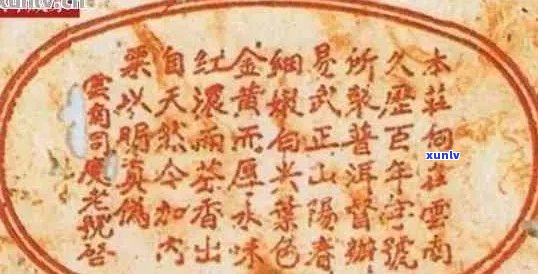 xunlv.cn
本莊向在雲南
久歷百年字號
所製普洱督辦
易武正山陽春
細嫩白尖葉色
金黃而厚水味
紅濃而芬香出
自天然今加內
票以明真偽
雲南同慶老號啟
xunlv